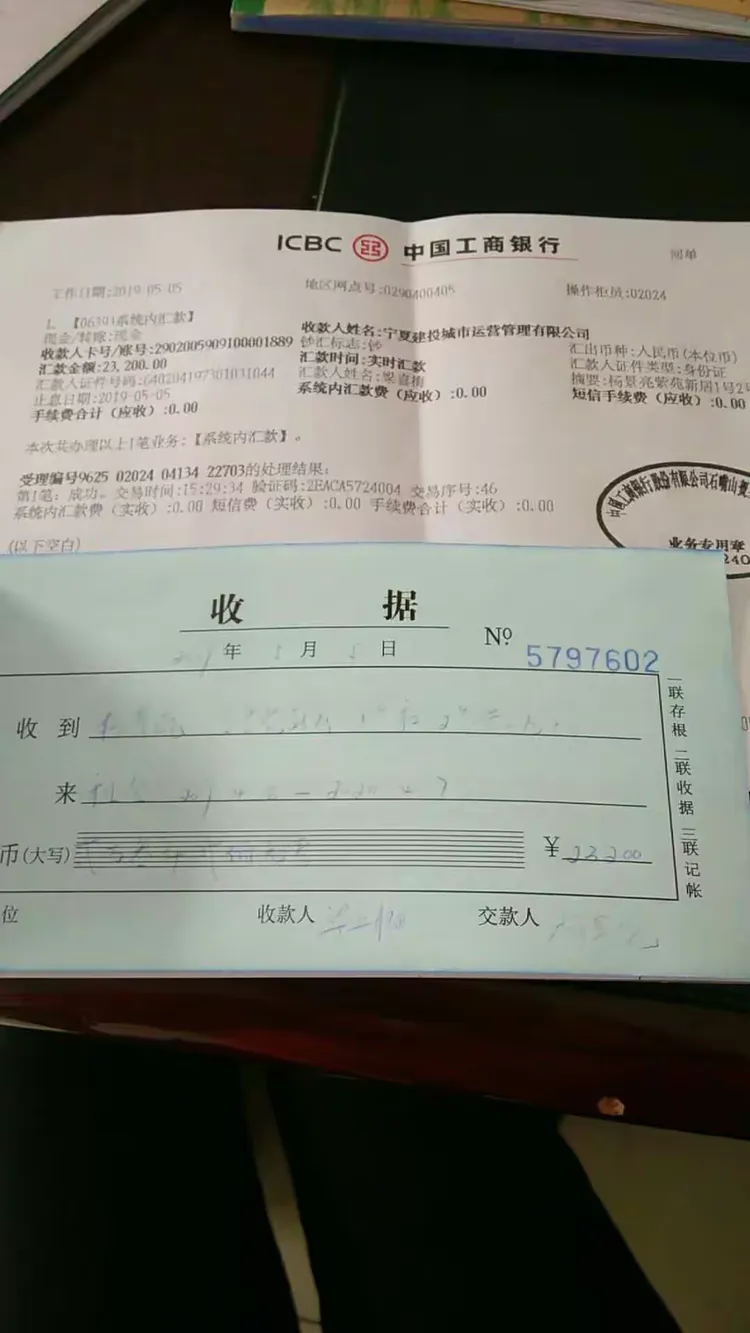 ICBC 中国工商银行
回单
工作日期:2019-05-05 地区网点号:0290400405 操作柜员:02024
1. 【0639]系统内汇款】
现金/转账:现金 收款人姓名:宁夏建投城市运营管理有限公司
收款人卡号/账号:2902005909100001889 钞汇标志:钞 汇出币种:人民币(本位币)
汇款金额:23,200.00 汇款时间:实时汇款 汇款人证件类型:身份证
汇款人证件号码:640204197301031044 汇款人姓名:梁喜梅 摘要:杨景亮紫苑新居1号2
止息日期:2019-05-05 系统内汇款费(应收):0.00 短信手续费(应收):0.00
手续费合计(应收):0.00
本次共办理以上1笔业务:【系统内汇款】。
受理编号9625 02024 04134 22703的处理结果:
第1笔: 成功。交易时间:15:29:34 验证码:2EACA5724004 交易序号:46
系统内汇款费(实收):0.00 短信费(实收):0.00 手续费合计(实收):0.00
(以下空白)
中国工商银行股份有限公司石嘴山
业务专用章
240
收 据
年 5 月 5 日 Nº 5797602
收到
来 租金
币(大写) ¥ 23200
位 收款人 交款人
一联存根 二联收据 三联记帐